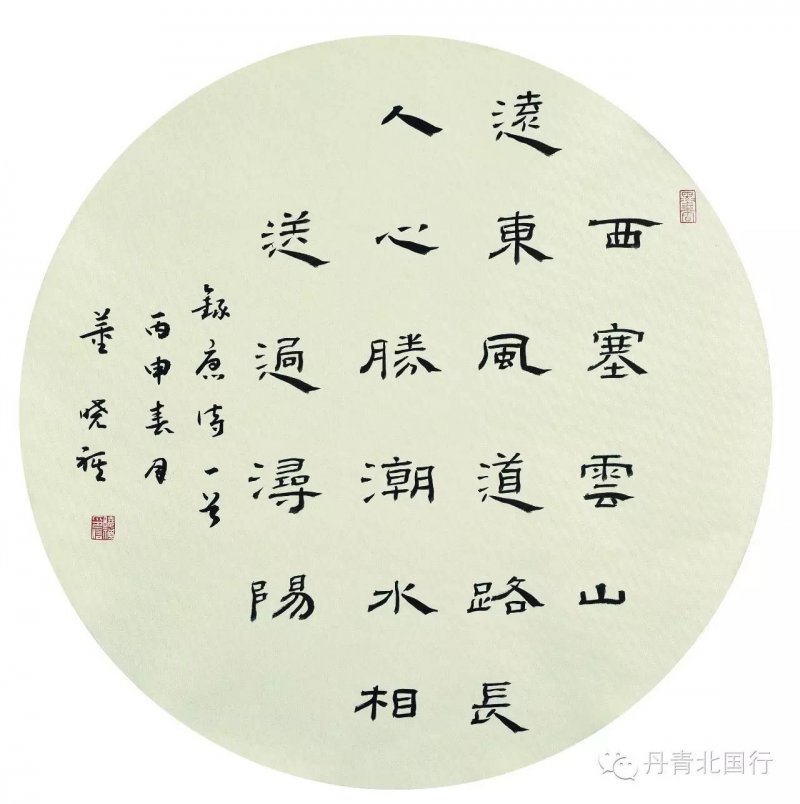 西塞雲山
遠東風道路長
人心勝潮水相
送過潯陽
錄唐詩一首
丙申春月
董晓
丹青北国行